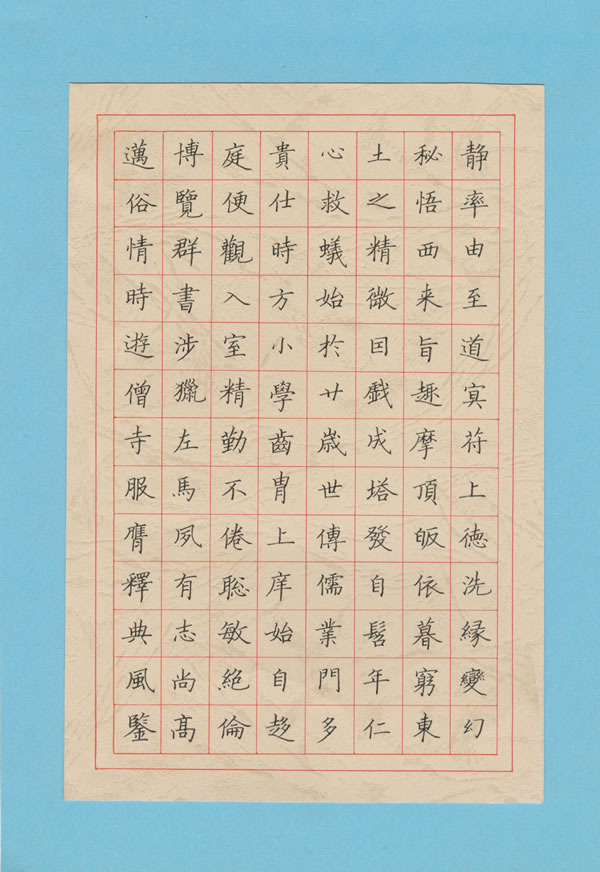 静率由至道㝠苻上徳洗縁變幻
秘悟西来旨趣摩頂皈依暮窮東
土之精微囙戯成塔發自髫年仁
心救蟻始於廿歳世傳儒業門多
貴仕時方小學齒胄上庠始自趍
庭便觀入室精勤不倦聡敏絶倫
博覽群書涉獵左馬夙有志尚髙
邁俗情時遊僧寺服膺釋典風鑒